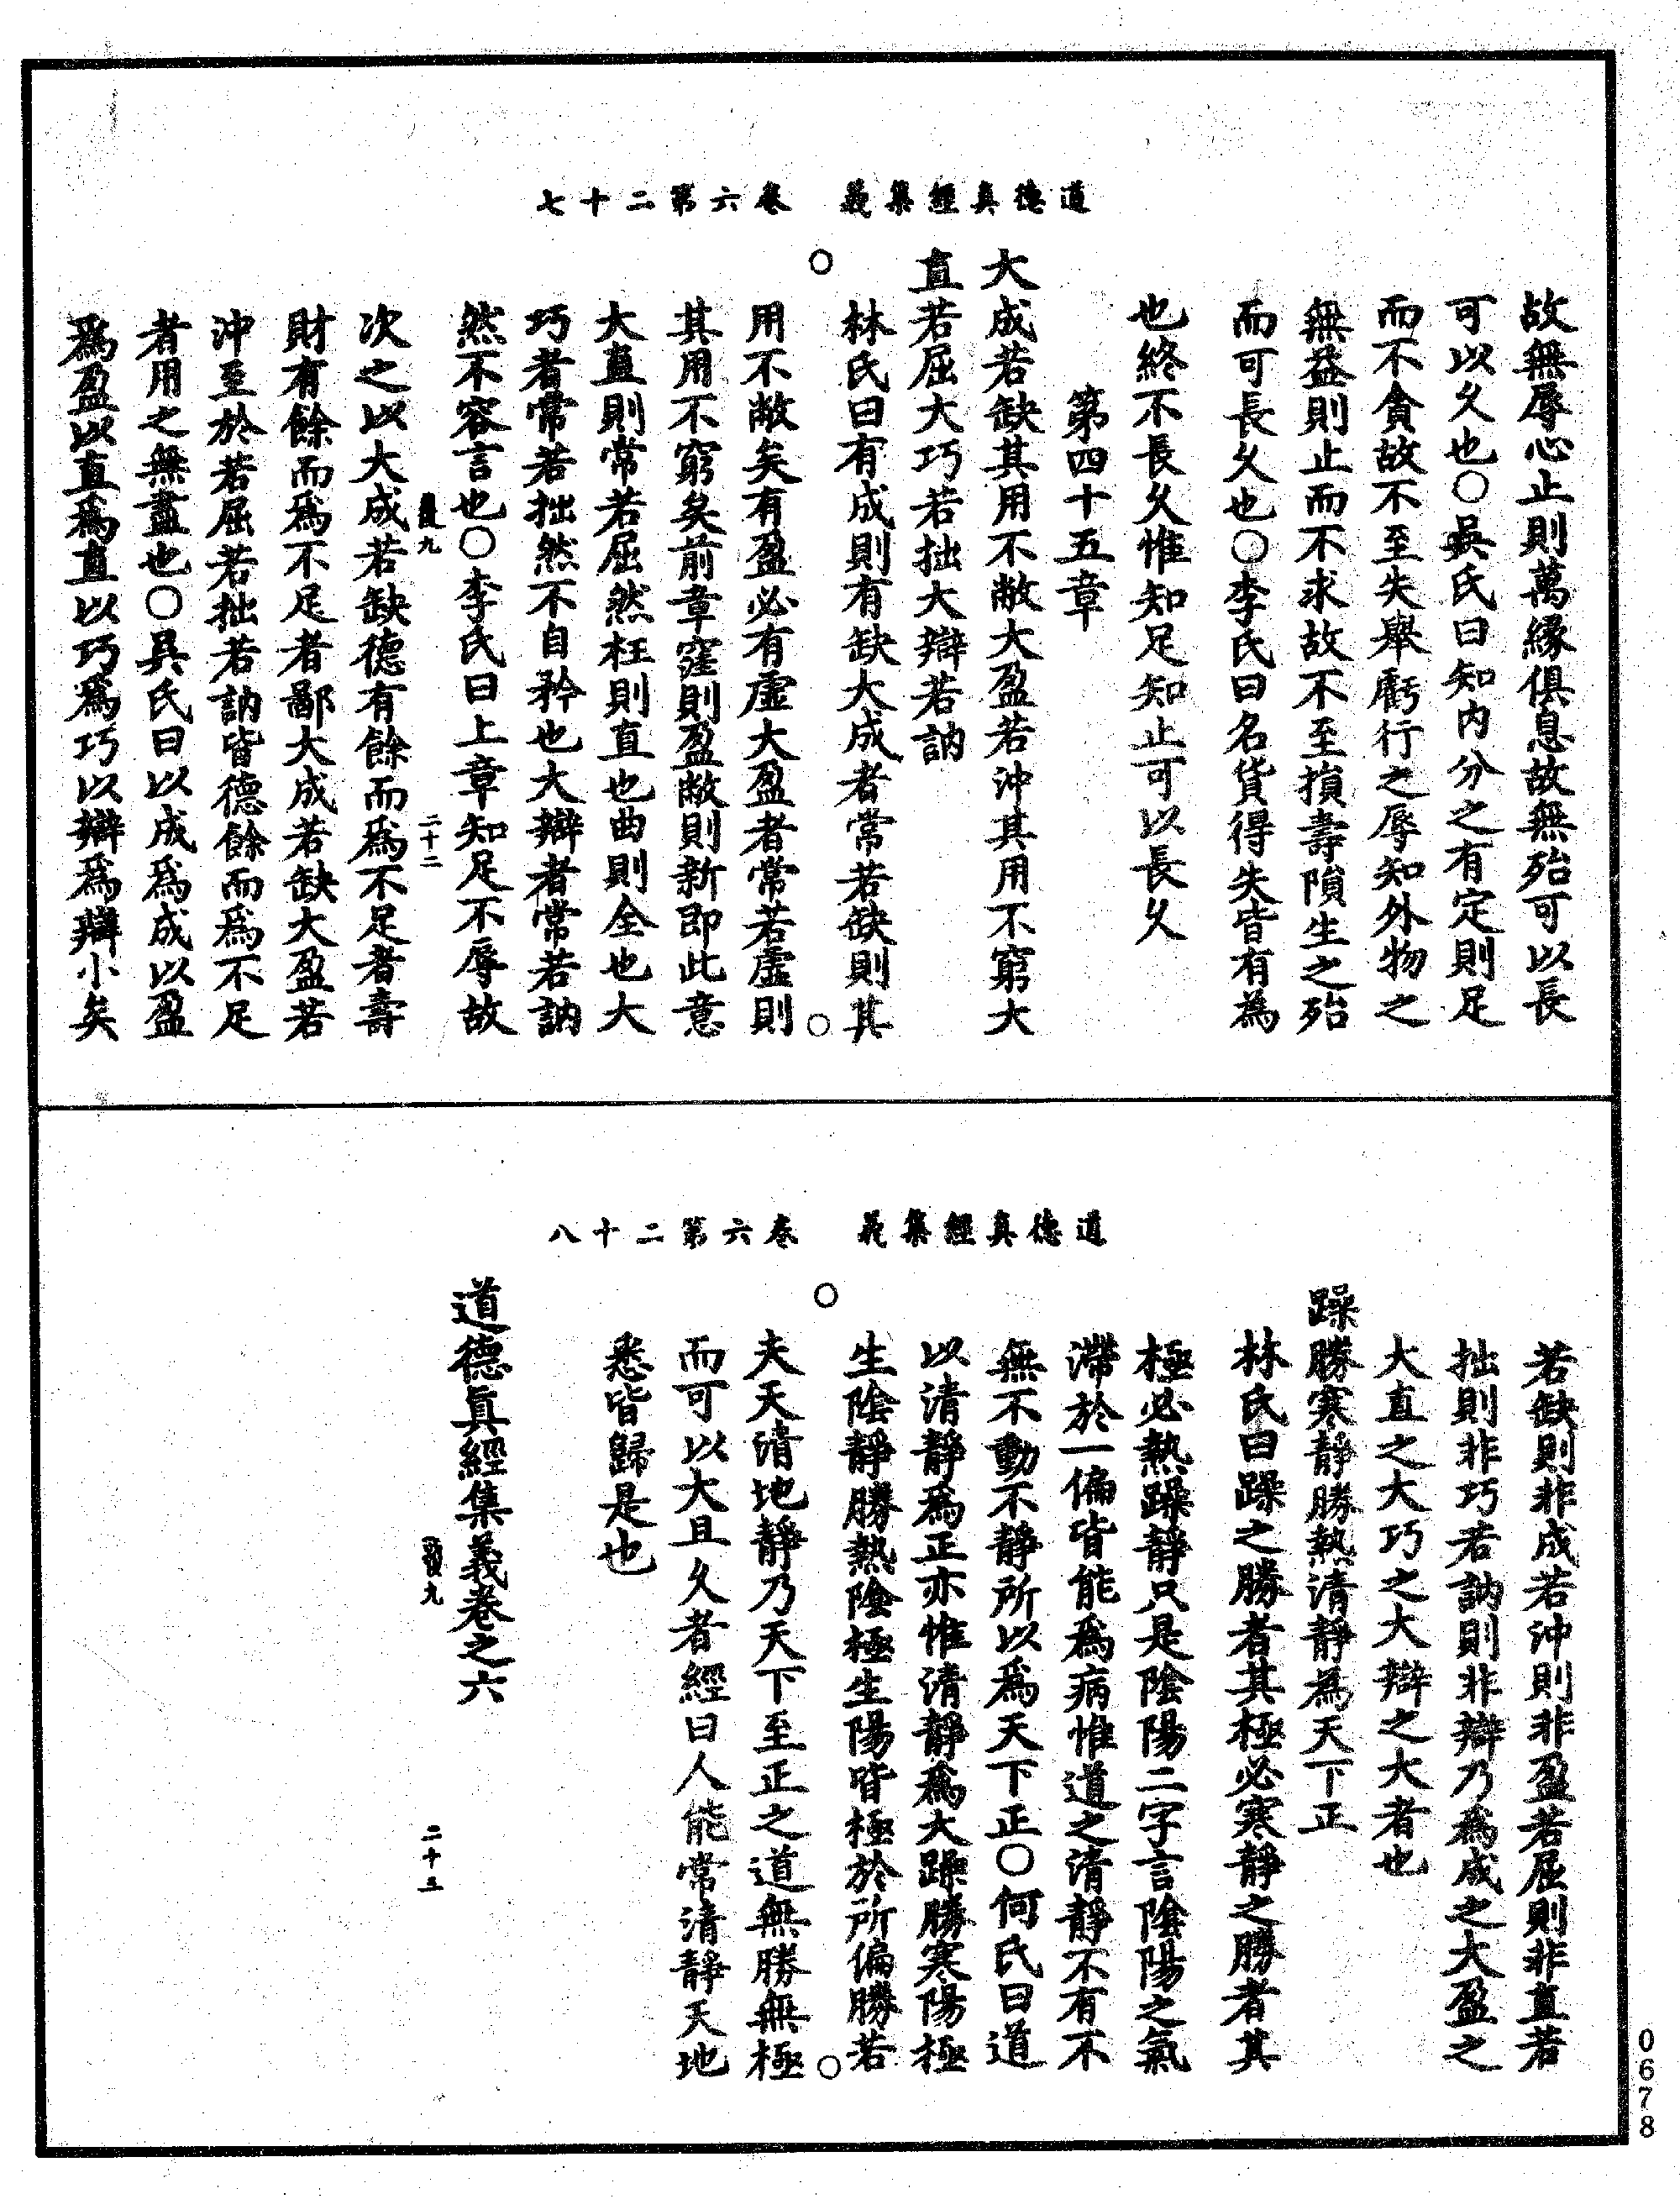 道德真經集義　卷六第二十七
故無辱心止則萬緣俱息故無殆可以長
可以久也〇吳氏曰知內分之有定則足
而不貪故不至失舉虧行之辱知外物之
無益則止而不求故不至損壽隕生之殆
而可長久也〇李氏曰名貨得失皆有為
也終不長久惟知足知止可以長久
第四十五章
大成若缺其用不敝大盈若沖其用不窮大
直若屈大巧若拙大辯若訥
林氏曰有成則有缺大成者常若缺則其
用不敝矣有盈必有虛大盈者常若虛則
其用不窮矣前章窪則盈敝則新即此意
大直則常若屈然枉則直也曲則全也大
巧者常若拙然不自矜也大辯者常若訥
然不容言也〇李氏曰上章知足不辱故
九　二十二
次之以大成若缺德有餘而爲不足者壽
財有餘而爲不足者鄙大成若缺大盈若
沖至於若屈若拙若訥皆德餘而爲不足
者用之無盡也〇吳氏曰以成爲成以盈
爲盈以直爲直以巧爲巧以辯爲辯小矣
道德真經集義　卷六第二十八
若缺則非成若沖則非盈若屈則非直若
拙則非巧若訥則非辯乃爲成之大盈之
大直之大巧之大辯之大者也
躁勝寒靜勝熱清靜爲天下正
林氏曰躁之勝者其極必寒靜之勝者其
極必熱躁靜只是陰陽二字言陰陽之氣
滯於一偏皆能爲病惟道之清靜不有不
無不動不靜所以爲天下正〇何氏曰道
以清靜爲正亦惟清靜爲大躁勝寒陽極
生陰靜勝熱陰極生陽皆極於所偏勝若
夫天清地靜乃天下至正之道無勝無極
而可以大且久者經曰人能常清靜天地
悉皆歸是也
道德眞經集義卷之六
九　二十三
0678